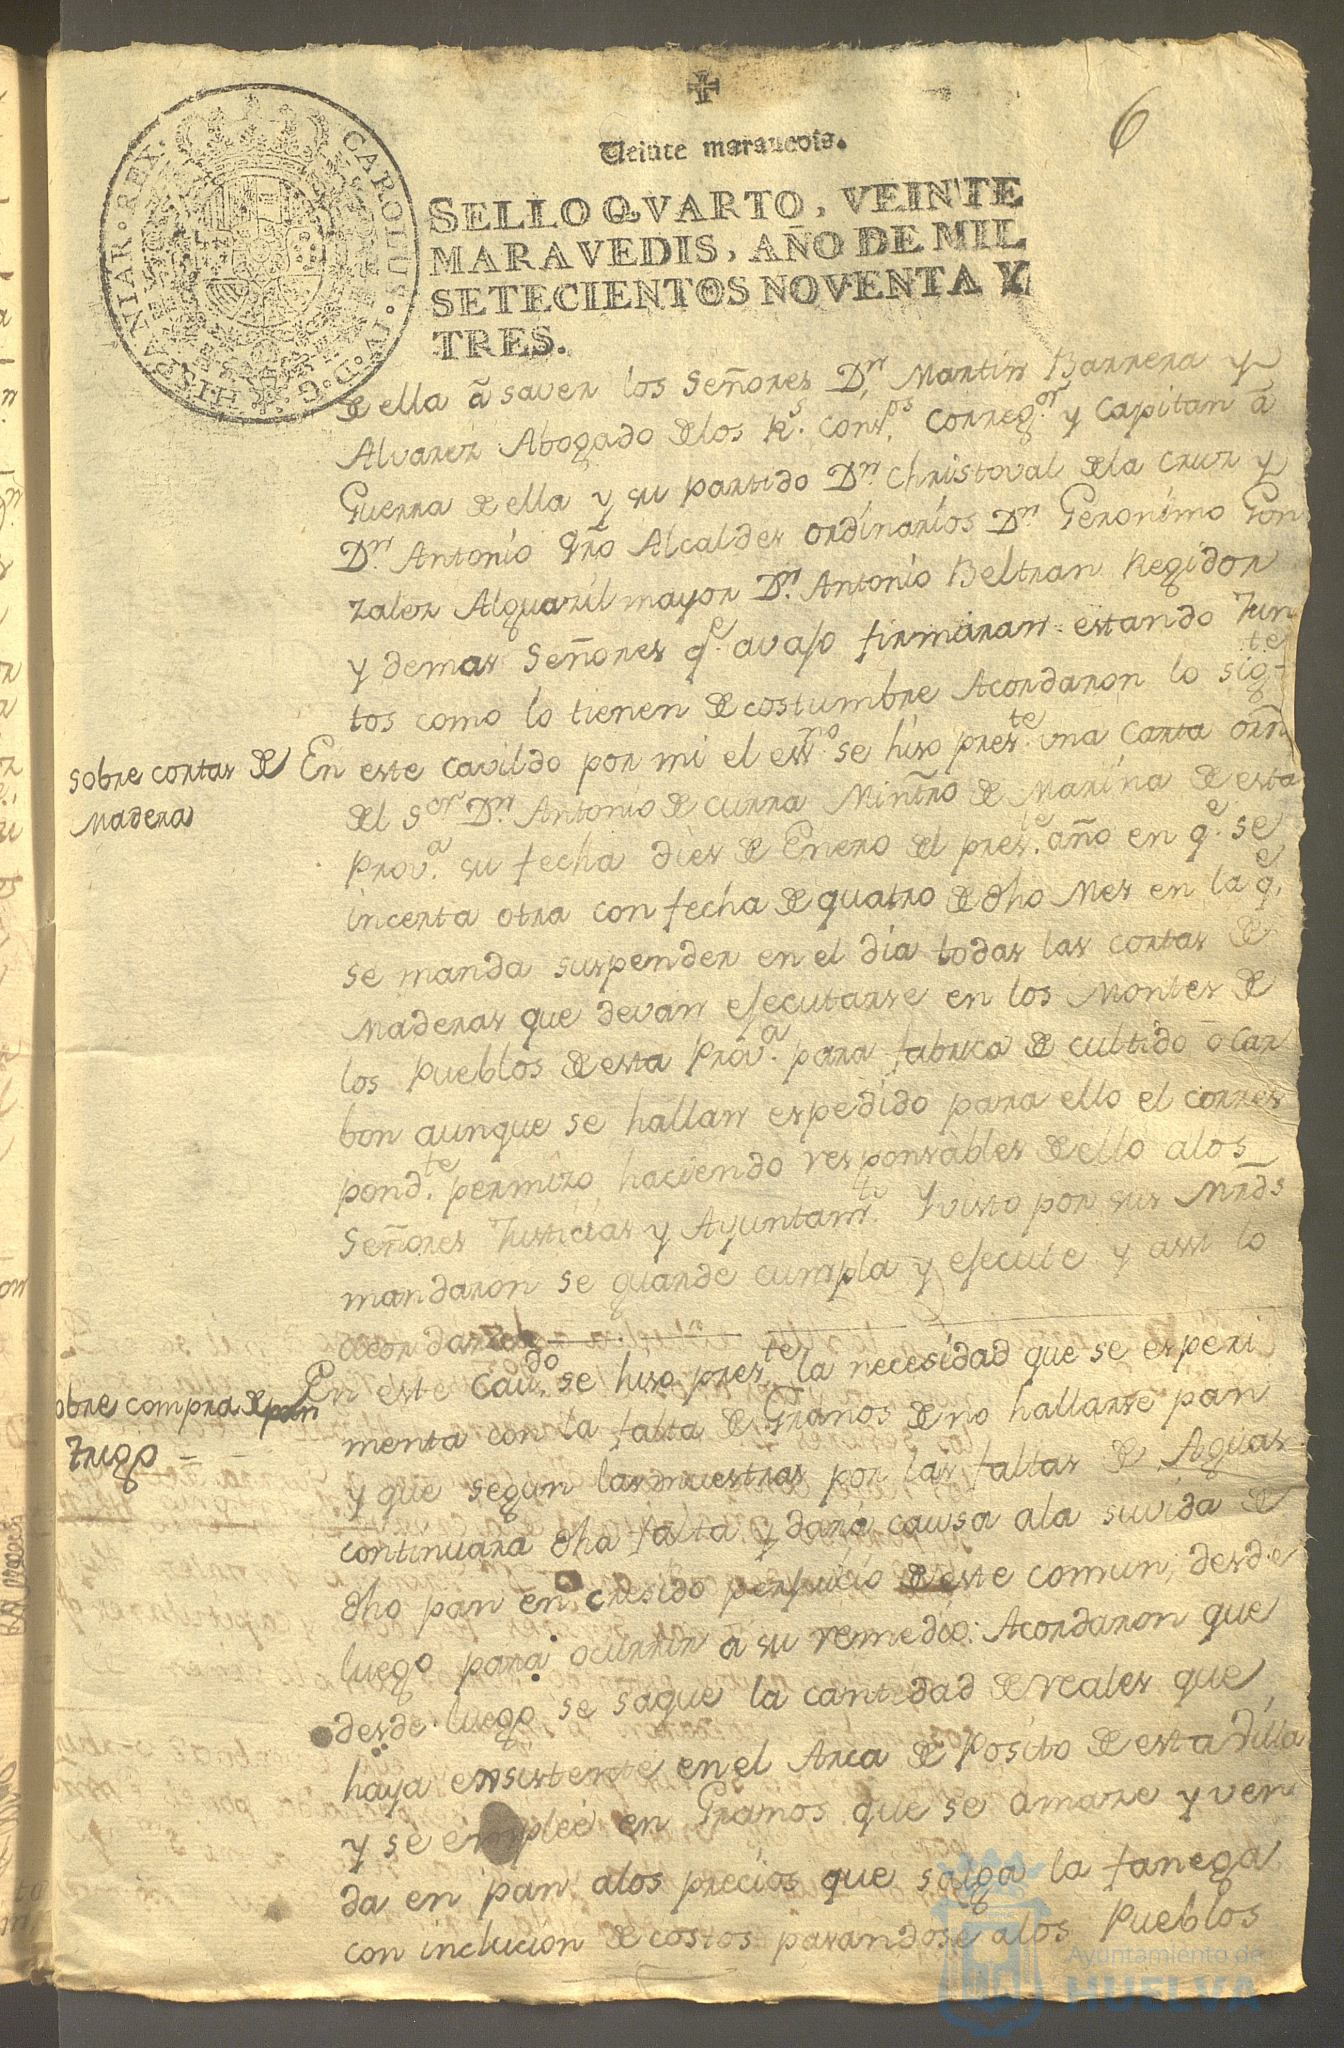 6
Veinte maravedis.
CAROLUS·IV·D·G·HISPANIAR·REX·
SELLO QVARTO, VEINTE
MARAVEDIS, AÑO DE MIL
SETECIENTOS NOVENTA Y
TRES.
de ella â saver los Señores Dn. Martin Barrera y
Alvarez Abogado de los Rs. Consos. Corregor y Capitan â
Guerra de ella y su partido Dn. Christoval de la Cruz y
Dn. Antonio Qro Alcaldes ordinarios Dn. Geronimo Gon
zalez Alguazil mayor Dn. Antonio Beltran Regidor
y demas Señores qe. avajo firmaran estando Jun
tos como lo tienen de costumbre Acordaron lo sigte
sobre cortas de
Madera
En este cavildo por mi el essno. se hiso preste. una Carta orñ
del Sor Dn. Antonio de Curra Miñtro de Marina de esta
Prova. su fecha dies de Enero del preste. año en qe. se
incerta otra con fecha de quatro de dho Mes en la qe.
se manda suspender en el dia todas las cortas de
Maderas que devan esecutarse en los Montes de
los Pueblos de esta Prova. para fabrica de cultido ô Car
bon aunque se hallan espedido para ello el corres
pondte. permizo haciendo responsables de ello a los
Señores Justicias y Ayuntamto. Y visto por sus Mrds
mandaron se guarde cumpla y esecute y assi lo
acordaron
sobre compra de pan
Trigo
En este Caudo. se hiso preste. la necesidad que se esperi
menta con la falta de Granos de no hallarse pan
y que segun las muestras por las faltas de Aguas
continuara dha falta y dará causa a la suvida de
dho pan en cresido persuicio de este comun, desde
luego para ocurrir a su remedio: Acordaron que
desde luego se saque la cantidad de reales que
haya ensistente en el Arca de Posito de esta Villa
y se emplee en Granos que se amare y ven
da en pan a los precios que salga la fanega
con inclucion de costos pasandose a los Pueblos
Ayuntamiento de
HUELVA